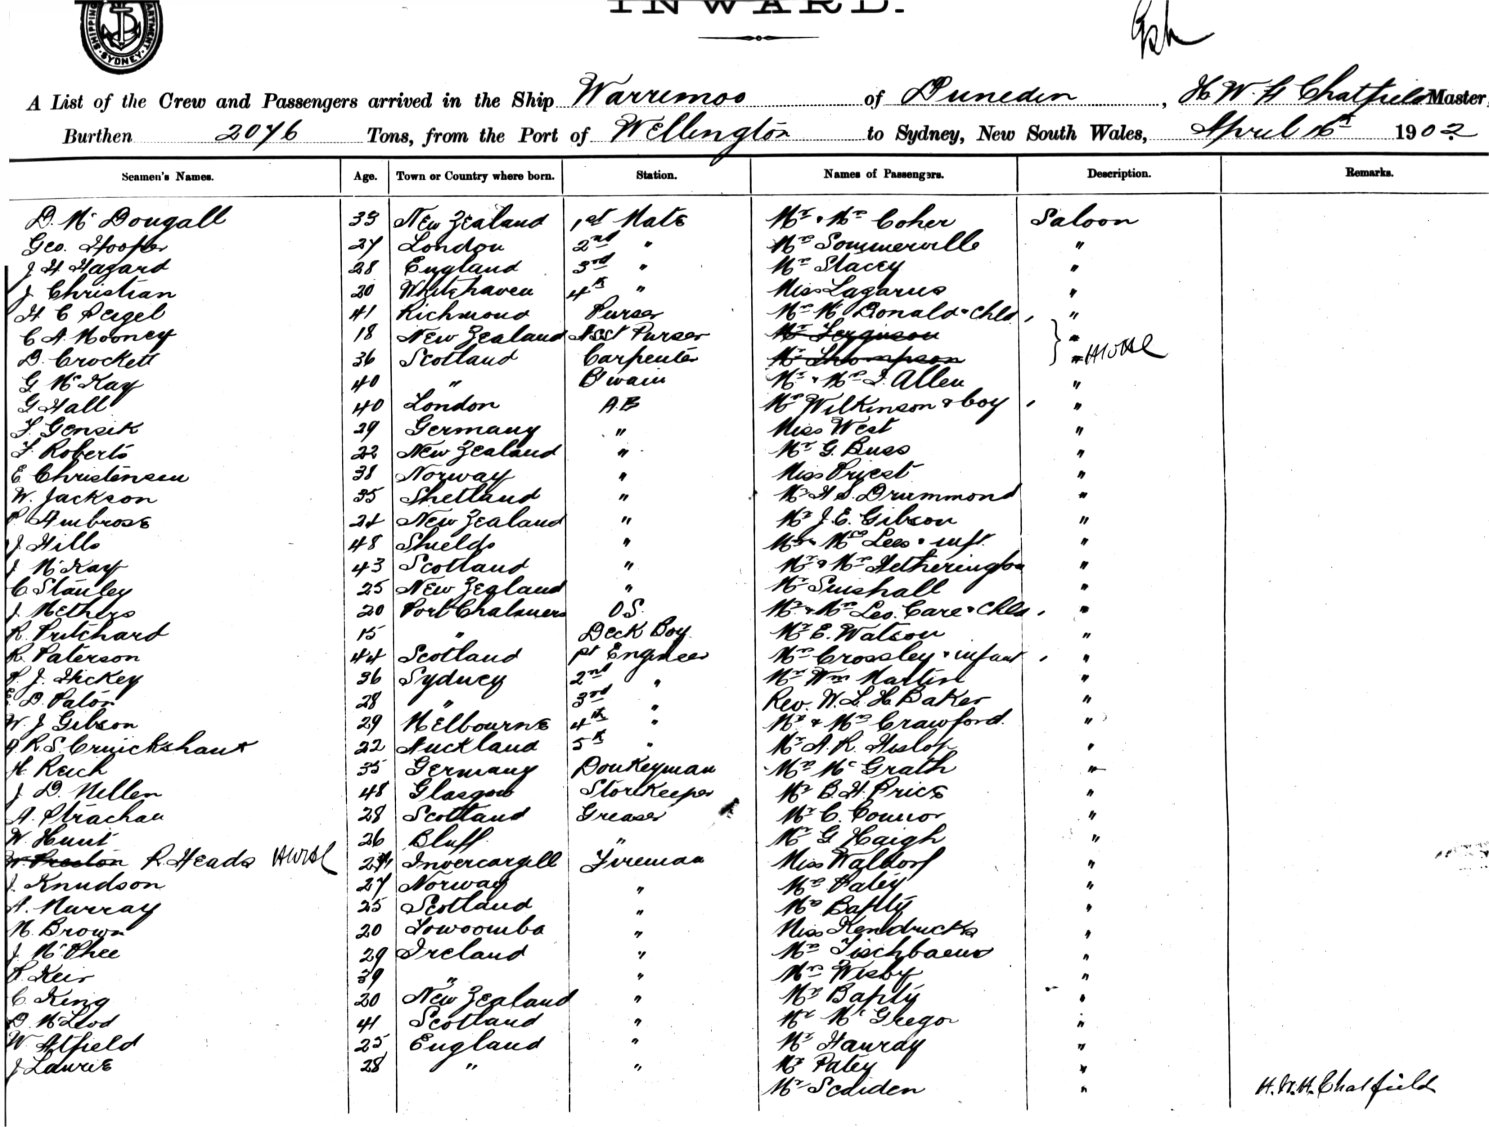 INWARD.
SHIPPING DEPARTMENT SYDNEY
A List of the Crew and Passengers arrived in the Ship Warrimoo of Dunedin, H W H Chatfield Master,
Burthen 2076 Tons, from the Port of Wellington to Sydney, New South Wales, April 16th 1902
Seamen's Names. Age. Town or Country where born. Station. Names of Passengers. Description. Remarks.
D. Mc Dougall 33 New Zealand 1st Mate Mr & Mrs Coher Saloon
Geo. Hooper 27 London 2nd " Mrs Sommerville "
J H Hazard 28 England 3rd " Mr Stacey "
J. Christian 20 Whitehaven 4th " Miss Lazarus "
H C 41 Richmond Purser Mrs Mc Donald & Chld, "
C A Mooney 18 New Zealand Asst Purser Mr Ferguson "
D. Crockett 36 Scotland Carpenter Mr Thompson " HWHC
G McKay 40 " B'swain Mr & Mrs J. Allen "
G Hall 40 London A.B Mrs Wilkinson & boy , "
F Gensik 29 Germany " Miss West "
F. Roberts 22 New Zealand " Mr G. Buss "
E Christensen 38 Norway " Miss Priest "
W. Jackson 35 Shetland " Mr H S Drummond "
P Ambrose 24 New Zealand " Mr J. E. Gibson "
J Hills 48 Shields " Mr & Mrs Lees & inft. "
J McKay 43 Scotland " Mr & Mrs Hetherington "
C Stanley 25 New Zealand " Mr "
J Methers 20 Port Chalmers O.S. Mr & Mrs Leo. Care & Chld , "
R. Pritchard 15 " Deck Boy Mr E. Watson "
R. Paterson 44 Scotland 1st Engineer Mrs Crossley & infant , "
P. J. Hickey 36 Sydney 2nd " Mr Wm Martin "
D. Paton 28 " 3rd " Rev. W. L. H Baker "
W. J Gibson 29 Melbourne 4th " Mr & Mrs Crawford. "
R. S. Cruickshank 22 Auckland 5th " Mr A. R. Hislop "
H. Reich 35 Germany Donkeyman Mrs McGrath "
J. D. Nellen 48 Glasgow Storekeeper Mr B. H. Price "
A. Strachan 28 Scotland Greaser Mr C. Connor "
W Hunt 26 Bluff " Mr G Haigh "
W Preston R. Heads HWHC Invercargill Fireman Miss Waldorf "
J. Knudson 27 Norway " Mrs Paley "
A. Murray 25 Scotland " Mrs Baptly "
M. Brown 20 Towoomba " Miss Kendricks "
J. McPhee 29 Ireland " Mrs "
R. Keir 39 " " Mrs Wisby "
C. King 20 New Zealand " Mr Baptly "
D. McLeod 41 Scotland " Mr McGregor "
W Atfield 25 England " Mr Hanray "
J Laurie 28 " " Mr Paley "
Mr Scaiden "
H. W. H. Chatfield